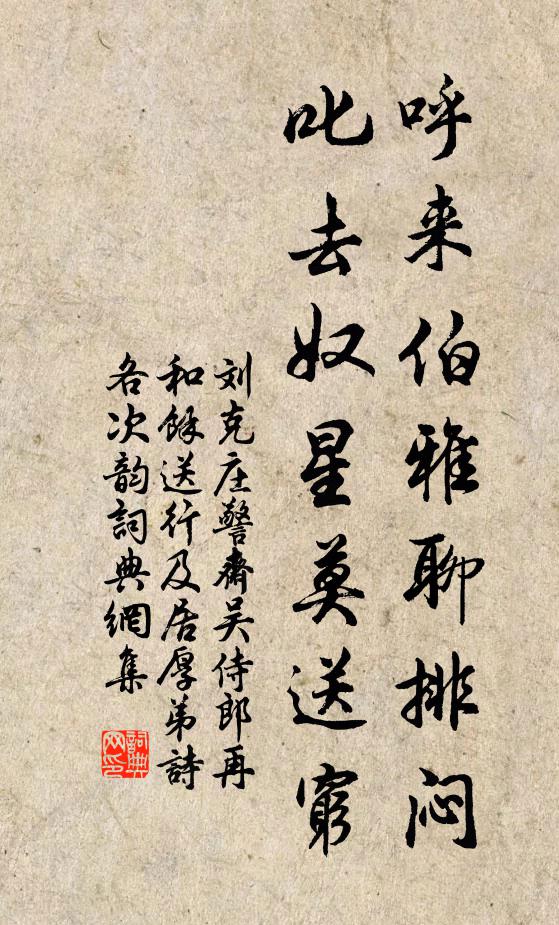 呼来伯雅聊排闷
叱去奴星莫送窮
刘克庄警齋吴侍郎再
和餘送行及居厚弟詩
各次韵詞典網集
詞典網印